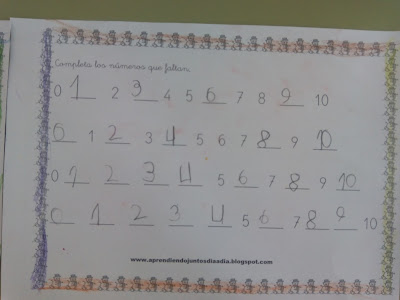 Completa los números que faltan.
0 1 2 3 4 5 6 7 8 9 10
0 1 2 3 4 5 6 7 8 9 10
0 1 2 3 4 5 6 7 8 9 10
0 1 2 3 4 5 6 7 8 9 10
www.aprendiendojuntosdiaadia.blogspot.com